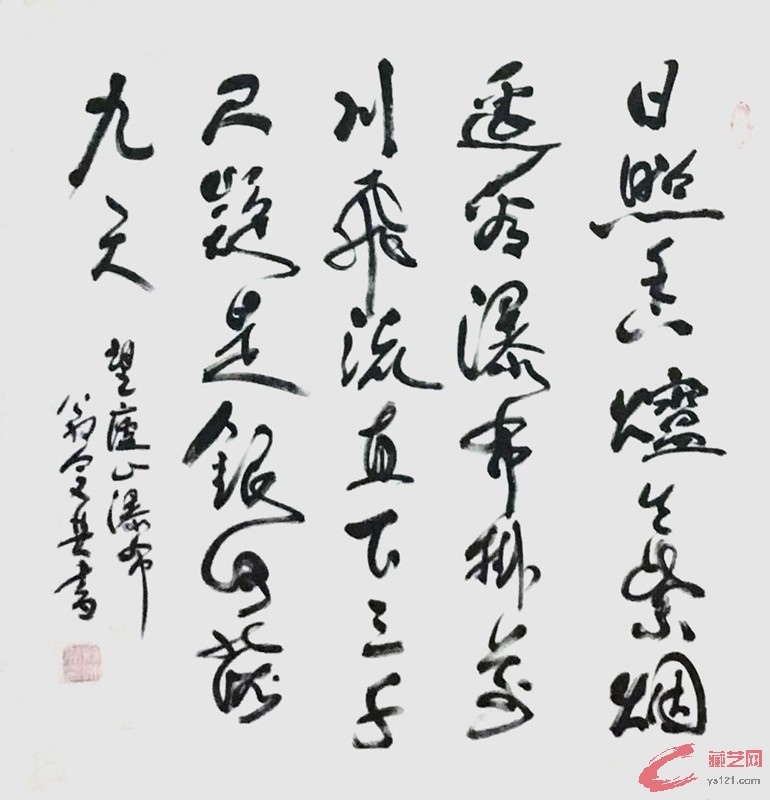 日照香爐生紫烟
遥看瀑布掛前
川飛流直下三千
尺疑是銀河落
九天
望廬山瀑布
書
藏艺网
ys121.com